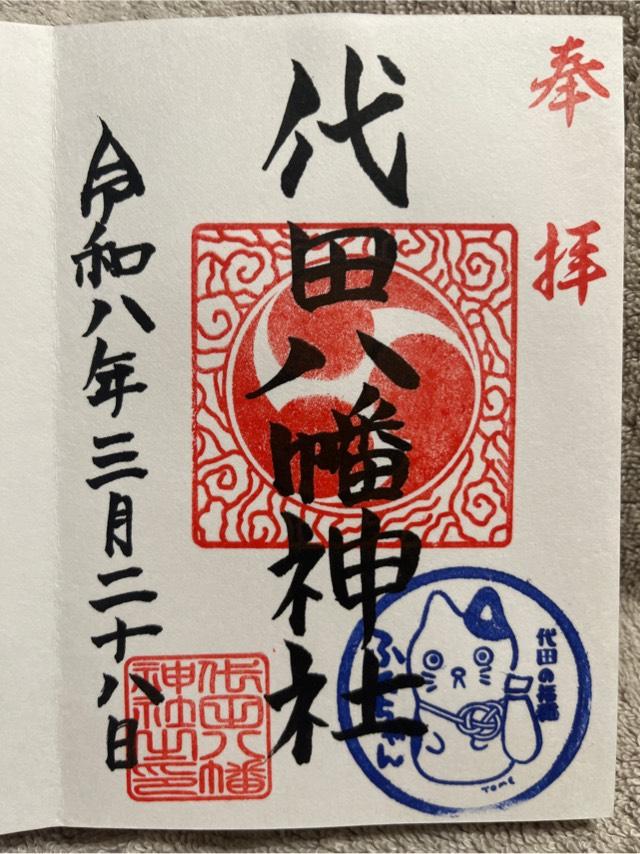 奉拝
代田八幡神社
令和八年三月二十八日
代田八幡
神社之印
代田の招福
ふくちゃん
TOME